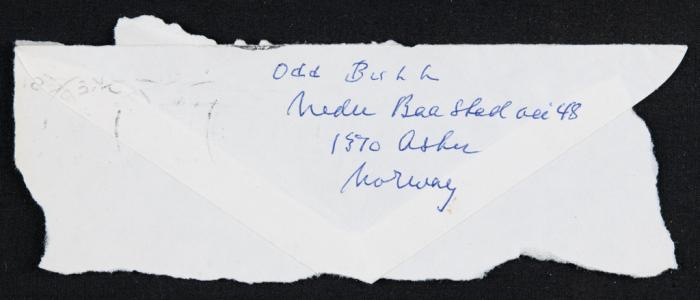 Odd Bull
Nedre Baastad vei 48
1370 Asker
Norway